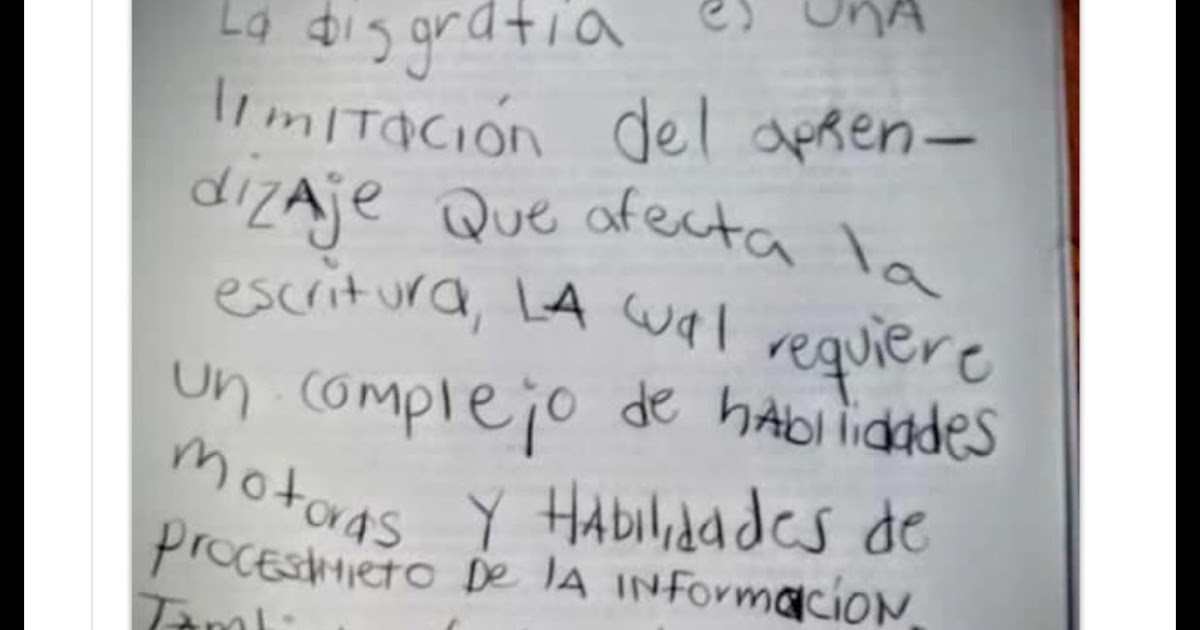 La disgrafia es UnA
limitación del apRen-
dizAje Que afecta la
escritura, LA cual requiere
un complejo de hAbilidades
motoras Y HAbilidades de
PROCESIMIETO De lA INFormacION.